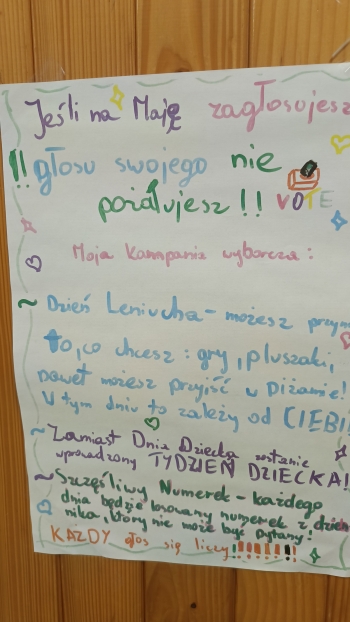 Jeśli na Maję zagłosujesz
!! głosu swojego nie
pożałujesz !! VOTE
Moja kampania wyborcza :
~ Dzień Leniucha - możesz
to, co chcesz : gry, pluszaki,
nawet możesz przyjść w piżamie!
W tym dniu to zależy od CIEBI
~ Zamiast Dnia Dziecka zostanie
wprowadzony TYDZIEŃ DZIECKA!
~ Szczęśliwy Numerek - każdego
dnia będzie losowany numerek z dzien
nika, który nie może być pytany!
KAŻDY głos się liczy!!!!!!!!